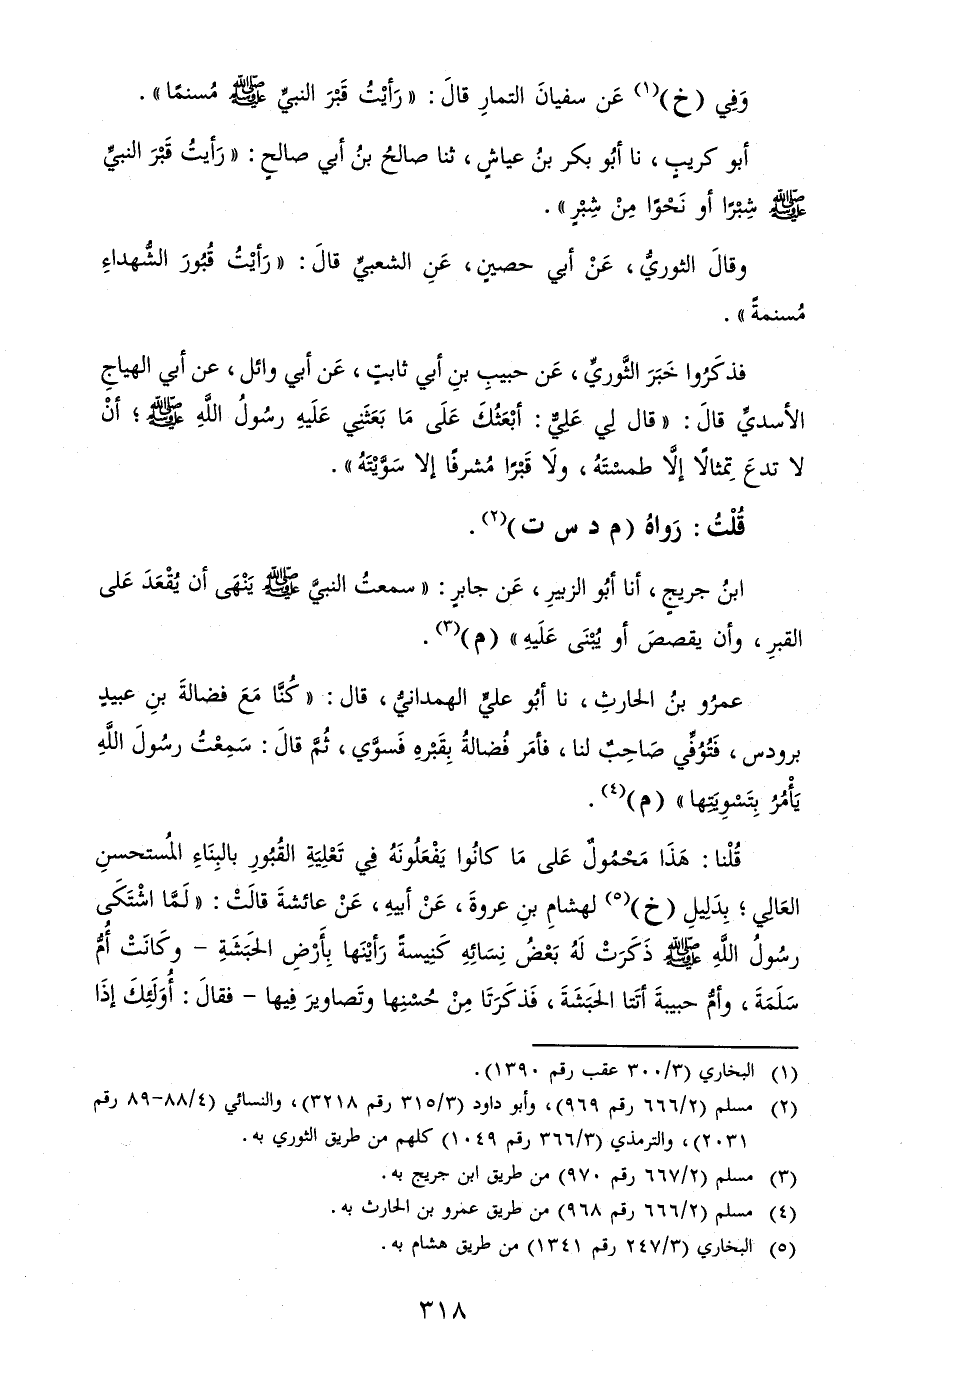 وَفِي (خ)(١) عَن سفيانَ التمارِ قالَ: «رَأيْتُ قَبْرَ النبيِّ ﷺ مُسنمًا».
أبو كريبٍ، نا أبُو بكر بنُ عياشٍ، ثنا صالحُ بنُ أبي صالحٍ: «رَأيتُ قَبْرَ النبيِّ
ﷺ شِبْرًا أو نَحْوًا مِنْ شِبْرٍ».
وقالَ الثوريُّ، عَنْ أبي حصينٍ، عَنِ الشعبيِّ قالَ: «رَأيْتُ قُبُورَ الشُّهداءِ
مُسنمةً».
فذكَرُوا خَبَرَ الثَّوريِّ، عَن حبيبِ بنِ أبي ثابتٍ، عَن أبي وائل، عن أبي الهياجِ
الأسديِّ قالَ: «قال لِي عَلِيٌّ: أبْعَثُكَ عَلَى مَا بَعَثَنِي عَلَيهِ رسُولُ اللَّهِ ﷺ؛ أنْ
لا تدعَ تِمثالًا إلَّا طمسْتَهُ، ولَا قَبْرًا مُشرفًا إلا سَوَّيْتَهُ».
قُلْتُ: رَواهُ (م د س ت)(٢).
ابنُ جريجٍ، أنا أبُو الزبيرِ، عَن جابرٍ: «سمعتُ النبيَّ ﷺ يَنْهَى أن يُقْعَدَ عَلى
القبرِ، وأن يقصصَ أو يُبْنَى عَلَيهِ» (م)(٣).
عمرُو بنُ الحارثِ، نا أبُو عليٍّ الهمدانيُّ، قال: «كُنَّا مَعَ فضالةَ بنِ عبيدٍ
برودس، فَتُوُفِّي صَاحِبٌ لنا، فأمَر فُضالةُ بِقَبْرِهِ فَسوَّي، ثُمَّ قالَ: سَمِعْتُ رسُولَ اللَّهِ
يَأْمُرُ بِتَسْوِيَتِها» (م)(٤).
قُلْنا: هَذَا مَحْمُولٌ عَلى مَا كانُوا يَفْعَلُونَهُ فِي تَعْلِيَةِ القُبُورِ بالبِنَاءِ المُستحسنِ
العَالِي؛ بِدَلِيلِ (خ)(٥) لهشامِ بنِ عروةَ، عَنْ أبيهِ، عَنْ عائشةَ قالَتْ: «لَمَّا اشْتَكَى
رسُولُ اللَّهِ ﷺ ذَكَرَتْ لَهُ بَعْضُ نِسَائِهِ كَنِيسةً رَأيْنَها بِأَرْضِ الحَبَشَةِ - وكَانَتْ أُمُّ
سَلَمَةَ، وأمُّ حبيبةَ أتَتا الحَبَشَةَ، فَذكَرَتَا مِنْ حُسْنِها وتَصاويرَ فِيها - فقالَ: أُوَلَئِكَ إذَا
(١) البخاري (٣/ ٣٠٠ عقب رقم ١٣٩٠).
(٢) مسلم (٢/ ٦٦٦ رقم ٩٦٩)، وأبو داود (٣/ ٣١٥ رقم ٣٢١٨)، والنسائي (٤/ ٨٨-٨٩ رقم
٢٠٣١)، والترمذي (٣/ ٣٦٦ رقم ١٠٤٩) كلهم من طريق الثوري به.
(٣) مسلم (٢/ ٦٦٧ رقم ٩٧٠) من طريق ابن جريج به.
(٤) مسلم (٢/ ٦٦٦ رقم ٩٦٨) من طريق عمرو بن الحارث به.
(٥) البخاري (٣/ ٢٤٧ رقم ١٣٤١) من طريق هشام به.
٣١٨